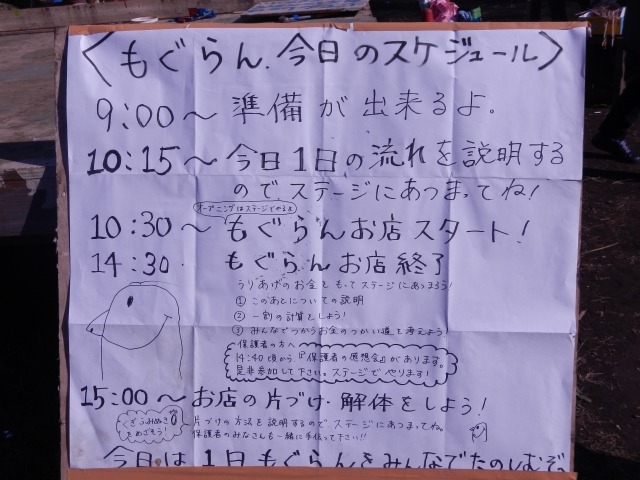 〈もぐらん.今日のスケジュール〉
9:00～準備が出来るよ。
10:15～今日1日の流れを説明する
ので、ステージにあつまってね!
オープニングはステージでやるよ
10:30～もぐらんお店スタート!
14:30. もぐらんお店終了
うりあげのお金をもってステージにあつまろう!
① このあとについての説明
② 一割の計算をしよう!
③ みんなでつかうお金のつかい道を考えよう!
保護者の方へ
14:40頃から『保護者の感想会』があります。
是非参加して下さい。ステージでやります!
15:00～お店の片づけ・解体をしよう!
くぎうみぬき
をめざそう!
片づけの方法を説明するので、ステージにあつまってね。
保護者のみなさんも一緒に手伝って下さい!!
今日は1日もぐらんをみんなでたのしむぞっ